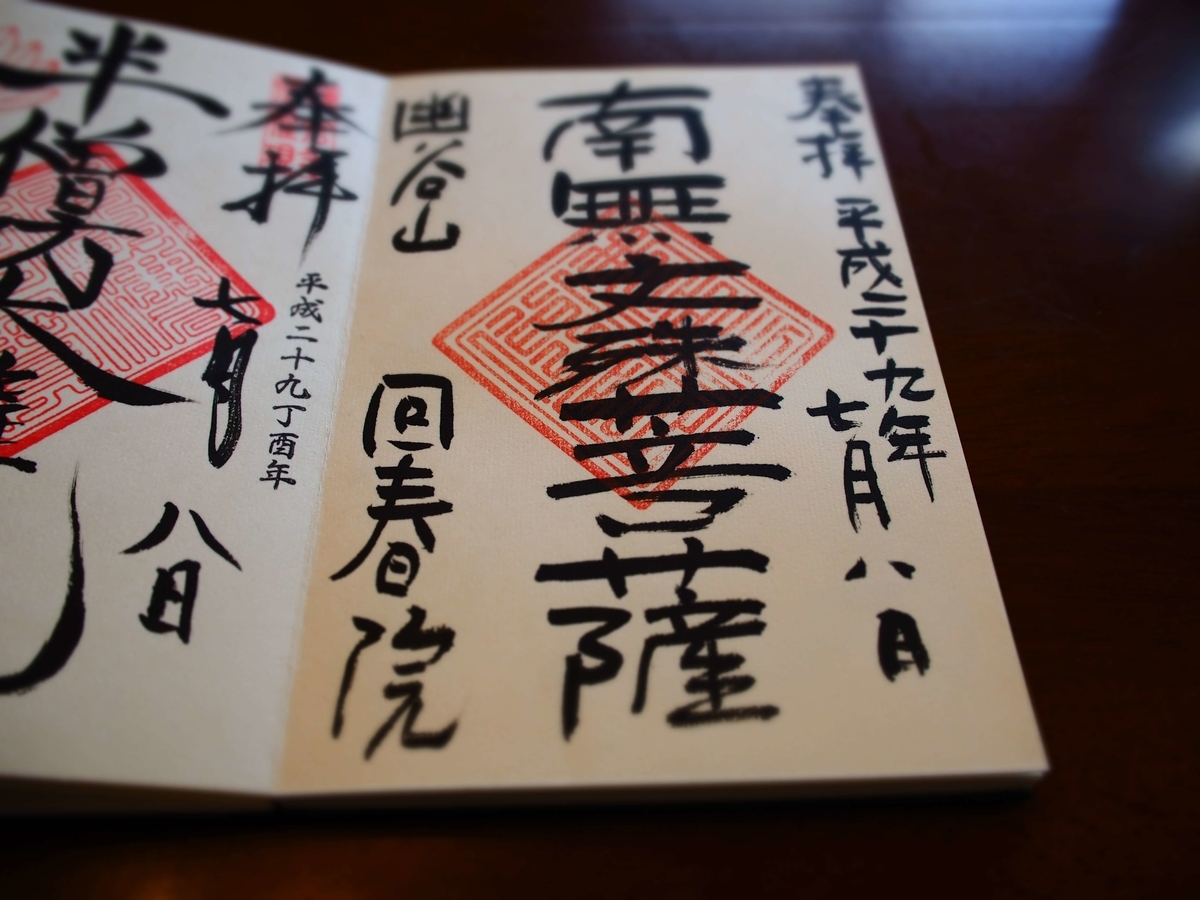 奉拝 平成二十九年
七月八日
南無文殊菩薩
幽谷山 回春院
奉拝
平成二十九丁酉年
七月八日
半僧坊大